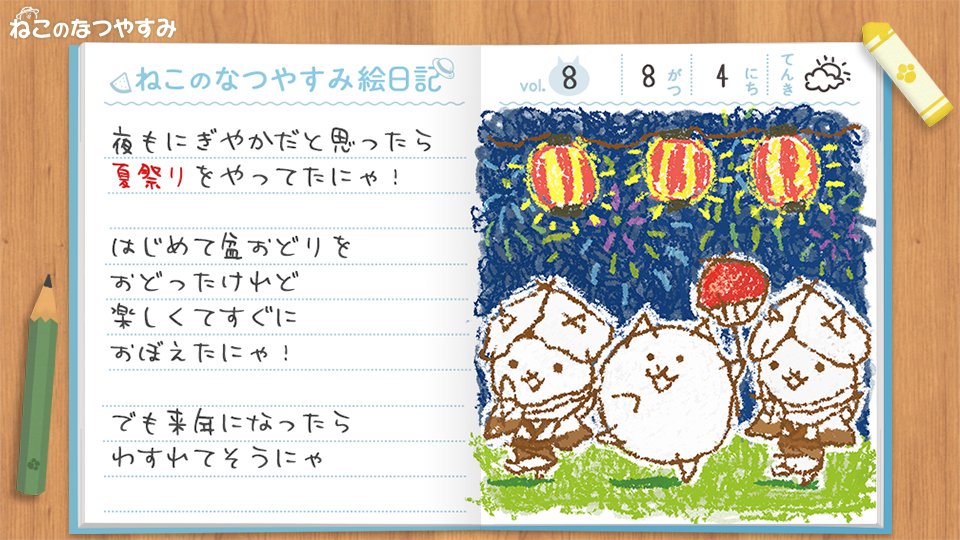 ねこのなつやすみ
ねこのなつやすみ絵日記
vol. 8 8がつ 4にち てんき
夜もにぎやかだと思ったら
夏祭りをやってたにゃ！
はじめて盆おどりを
おどったけれど
楽しくてすぐに
おぼえたにゃ！
でも来年になったら
わすれてそうにゃ